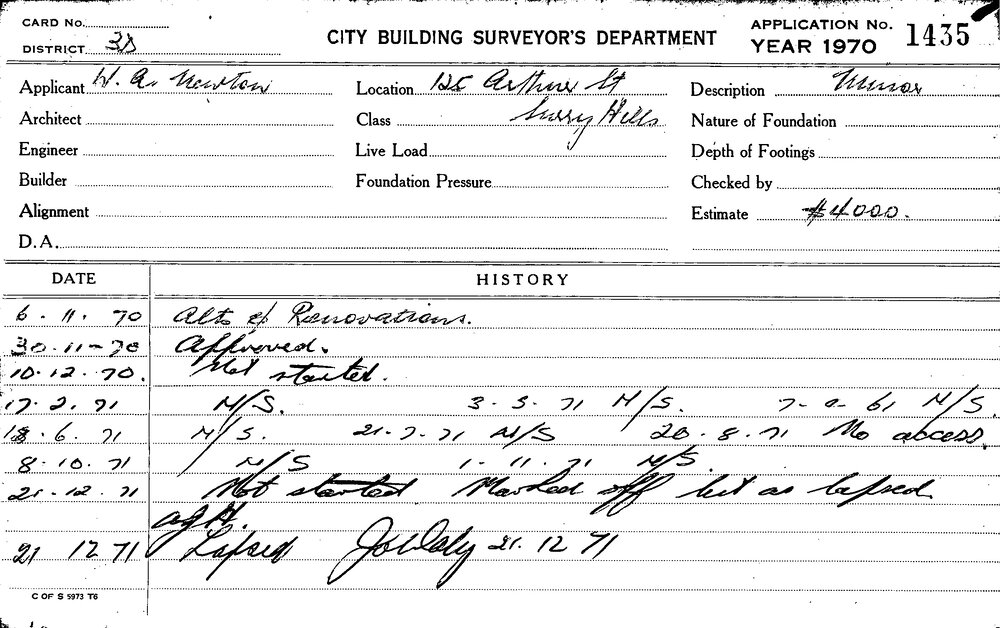 CARD No.
DISTRICT 3D
CITY BUILDING SURVEYOR'S DEPARTMENT
APPLICATION No. 1435
YEAR 1970
Applicant W. A. Newton
Location 125 Arthur St
Description Minor
Architect
Class Surry Hills
Nature of Foundation
Engineer
Live Load
Depth of Footings
Builder
Foundation Pressure
Checked by
Alignment
Estimate $4000.
D.A.
DATE HISTORY
6. 11. 70 Alts & Renovations.
30. 11-70 Approved.
10. 12. 70. Not started.
17. 2. 71 N/S. 3. 5. 71 N/S. 7- 61 N/S.
18. 6. 71 N/S. 21. 7. 71 N/S 20. 8. 71 No access.
8. 10. 71 N/S 1. 11. 71 N/S.
21. 12. 71 Not started Marked off list as lapsed
21 12 71 Lapsed 21. 12 71
C OF S 5973 T6